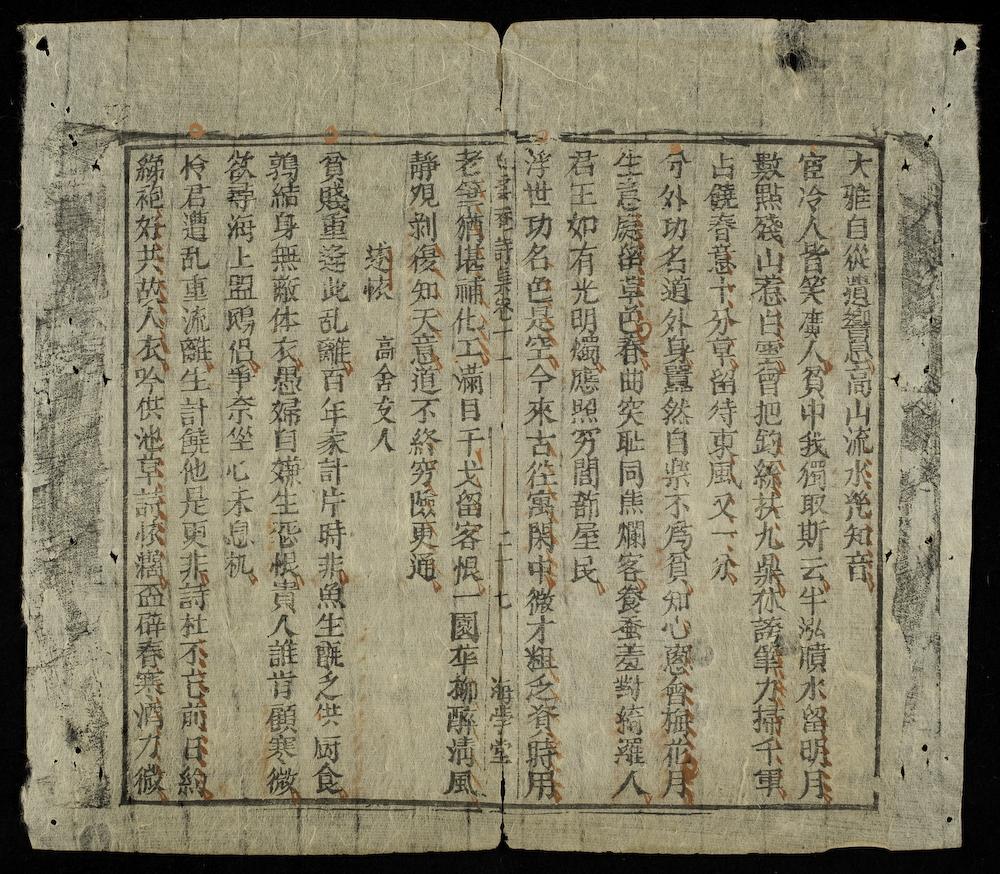 大雅自從遺響息高山流水㡬知音
宦冷人皆笑廣人貧中我獨取斯云半泓隤水留明月
數點殘山惹白雲曾把釣絲扶九鼎休誇筆力掃千軍
占饒春意十分京留待東風又一分
分外功名道外身囂然自樂不爲貧知心恩會梅花月
生意庭留草色春曲突耻同焦爛客養蚕羞對綺羅人
君王如有光明燭應照穷閻蔀屋民
浮世功名色是空今來古徃寓閑中微才粗乏資時用
白雲菴詩集卷一 二十七 海學堂
老筆猶堪補化工滿目干戈留客恨一園花柳醉清風
靜覌剥復知天意道不終穷險更通
述懷 高舍友人
貧賤重逢此乱離百年家計片時非魚生既乏供厨食
鶉結身無敝体衣愚婦自嫌生恐恨貴人誰肯顧寒微
欲尋海上盟鷗侣爭奈坐心未息机
怜君遭乱重流離生計饒他是更非詩社不忘前日約
綈袍好共故人衣吟供池草詩懷濶盃礔春寒酒力微